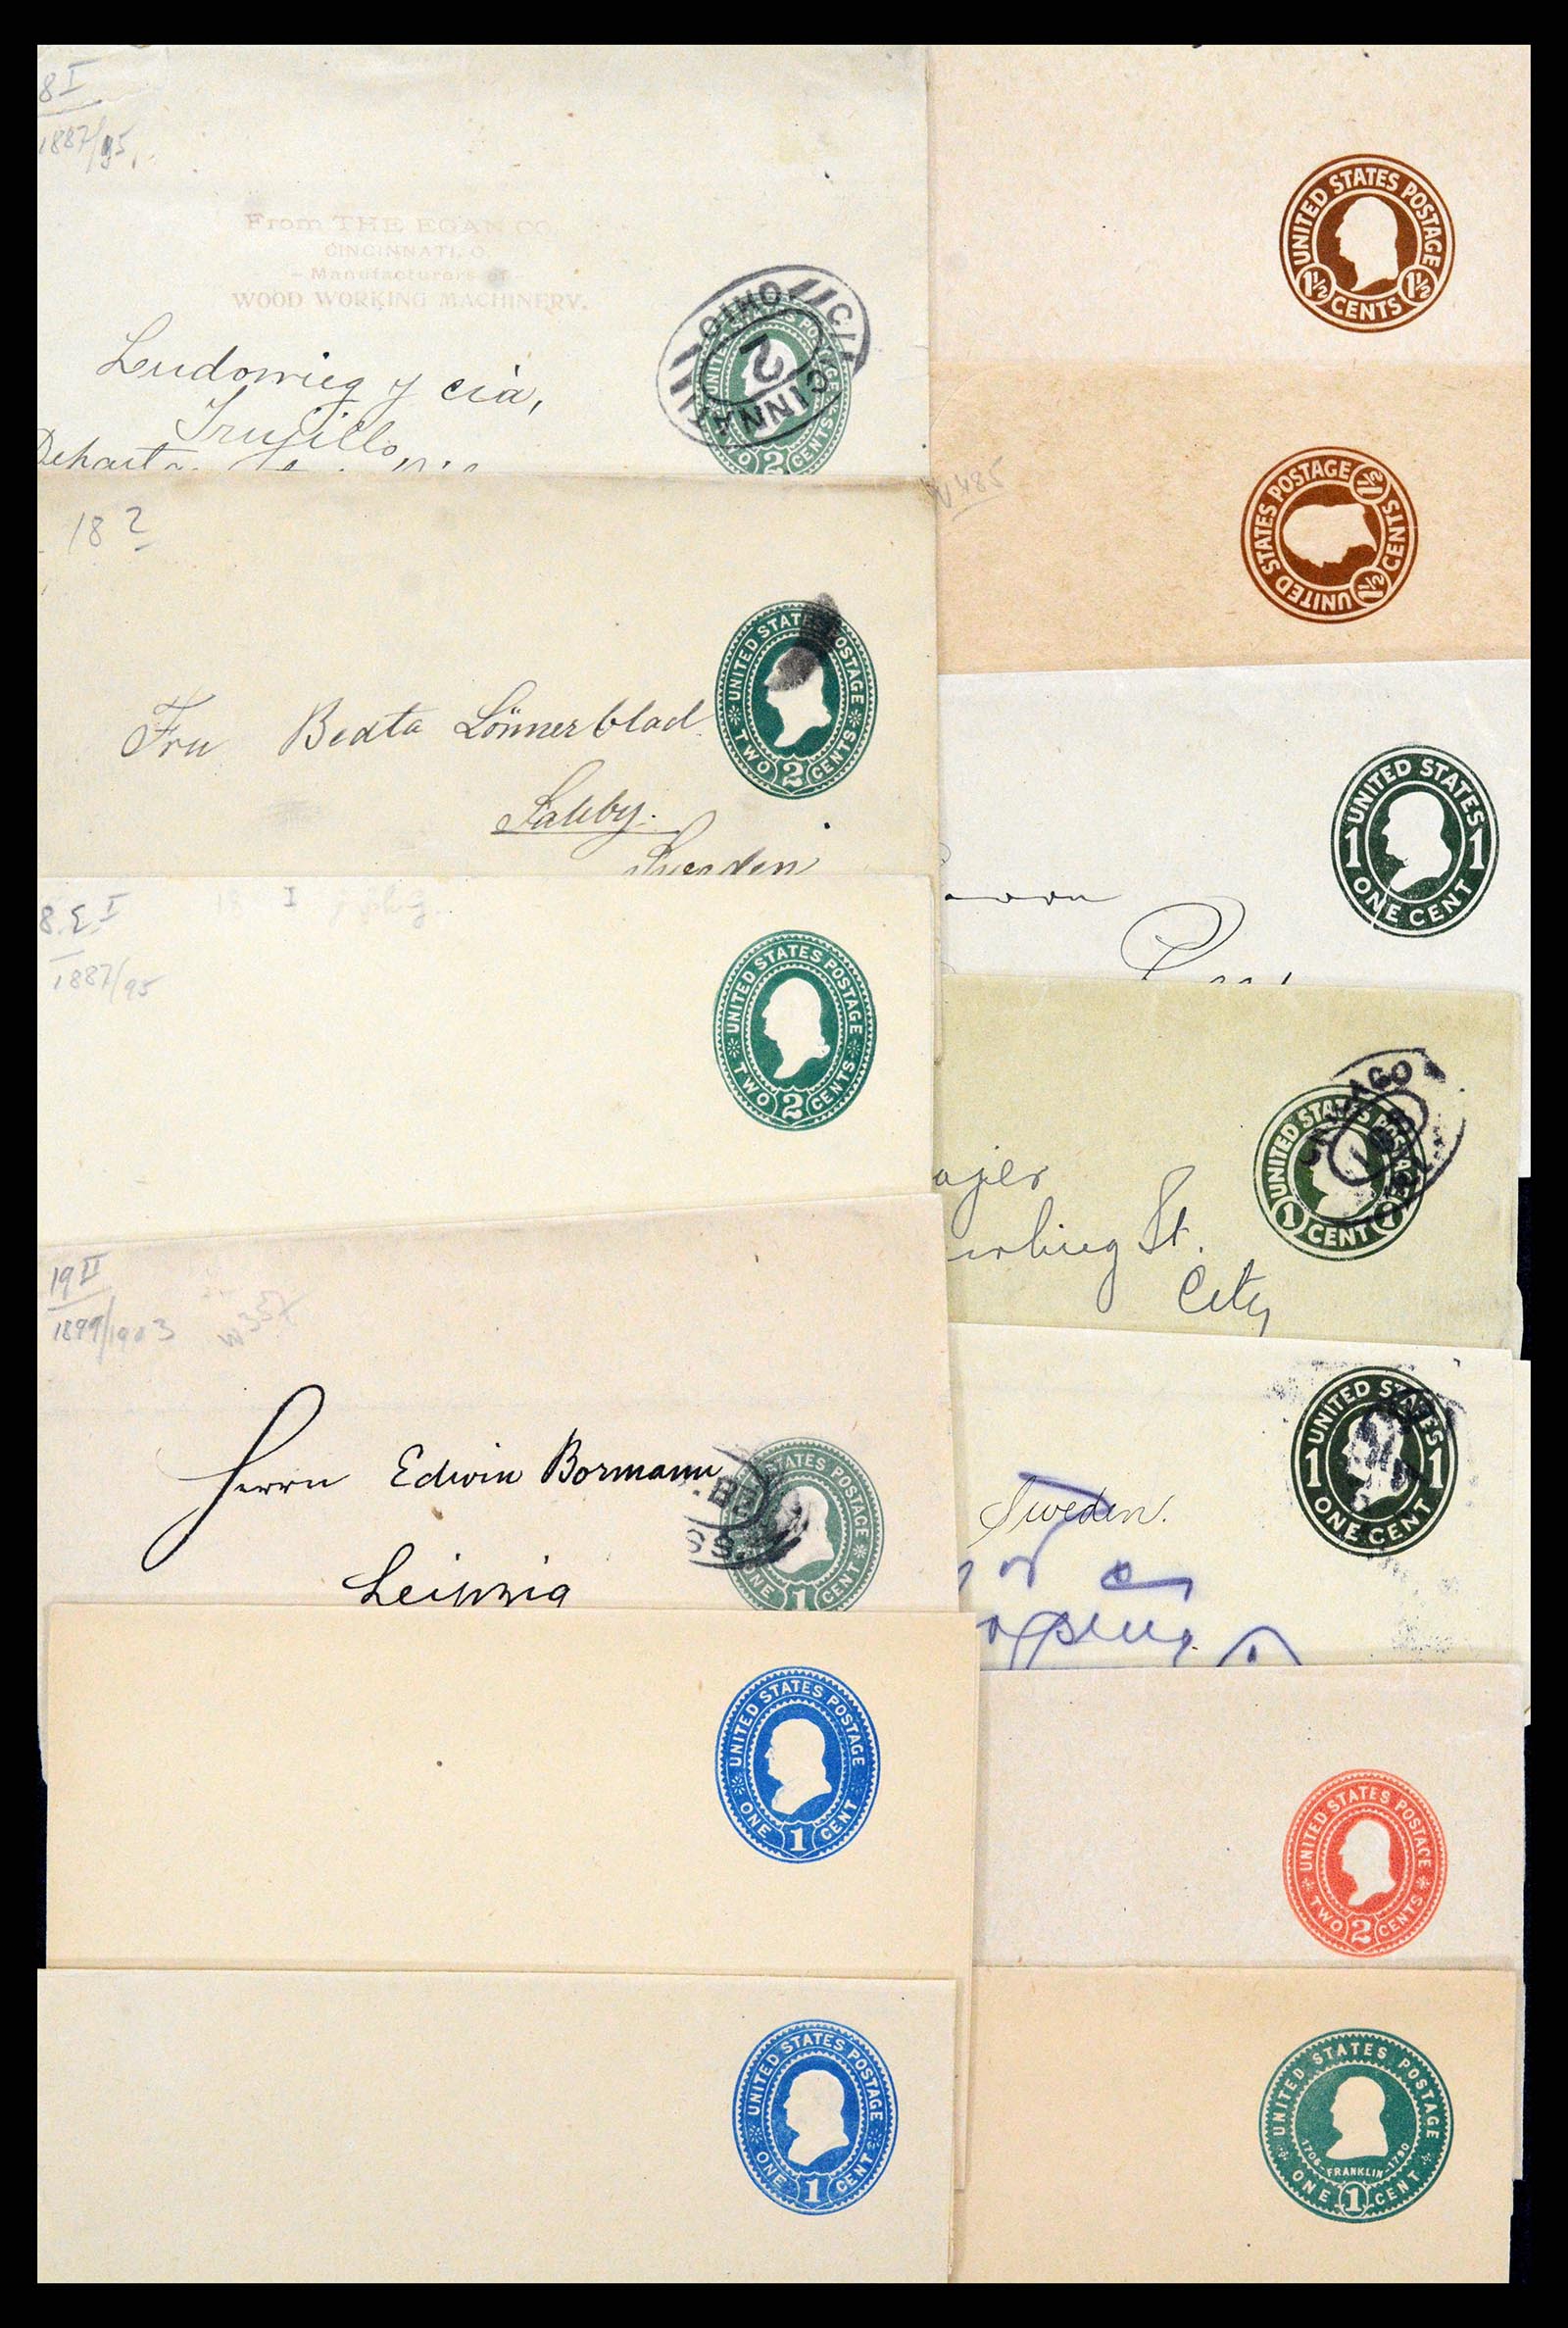 8 I
1887/95.
From THE EGAN CO.
CINCINNATI, O.
- Manufacturers of -
WOOD WORKING MACHINERY.
Ludowieg y cia,
Trujillo
CINCINNATI OHIO
2
UNITED STATES POSTAGE
TWO 2 CENTS
18 ?
Fru Beata Lönnerblad
Sweden
UNITED STATES POSTAGE
TWO 2 CENTS
8. E. I
1887/95
I
UNITED STATES POSTAGE
TWO 2 CENTS
19 II
1899/1903
W357
Herrn Edwin Bormann
Leipzig
UNITED STATES POSTAGE
ONE 1 CENT
UNITED STATES POSTAGE
ONE 1 CENT
UNITED STATES POSTAGE
ONE 1 CENT
UNITED STATES POSTAGE
1½ CENTS 1½
W485
UNITED STATES POSTAGE
1½ CENTS 1½
UNITED STATES
1 1
ONE CENT
CHICAGO
UNITED STATES POSTAGE
1 CENT 1
St.
City
UNITED STATES
1 1
ONE CENT
Sweden.
UNITED STATES POSTAGE
TWO 2 CENTS
UNITED STATES POSTAGE
1706-FRANKLIN-1790
ONE 1 CENT